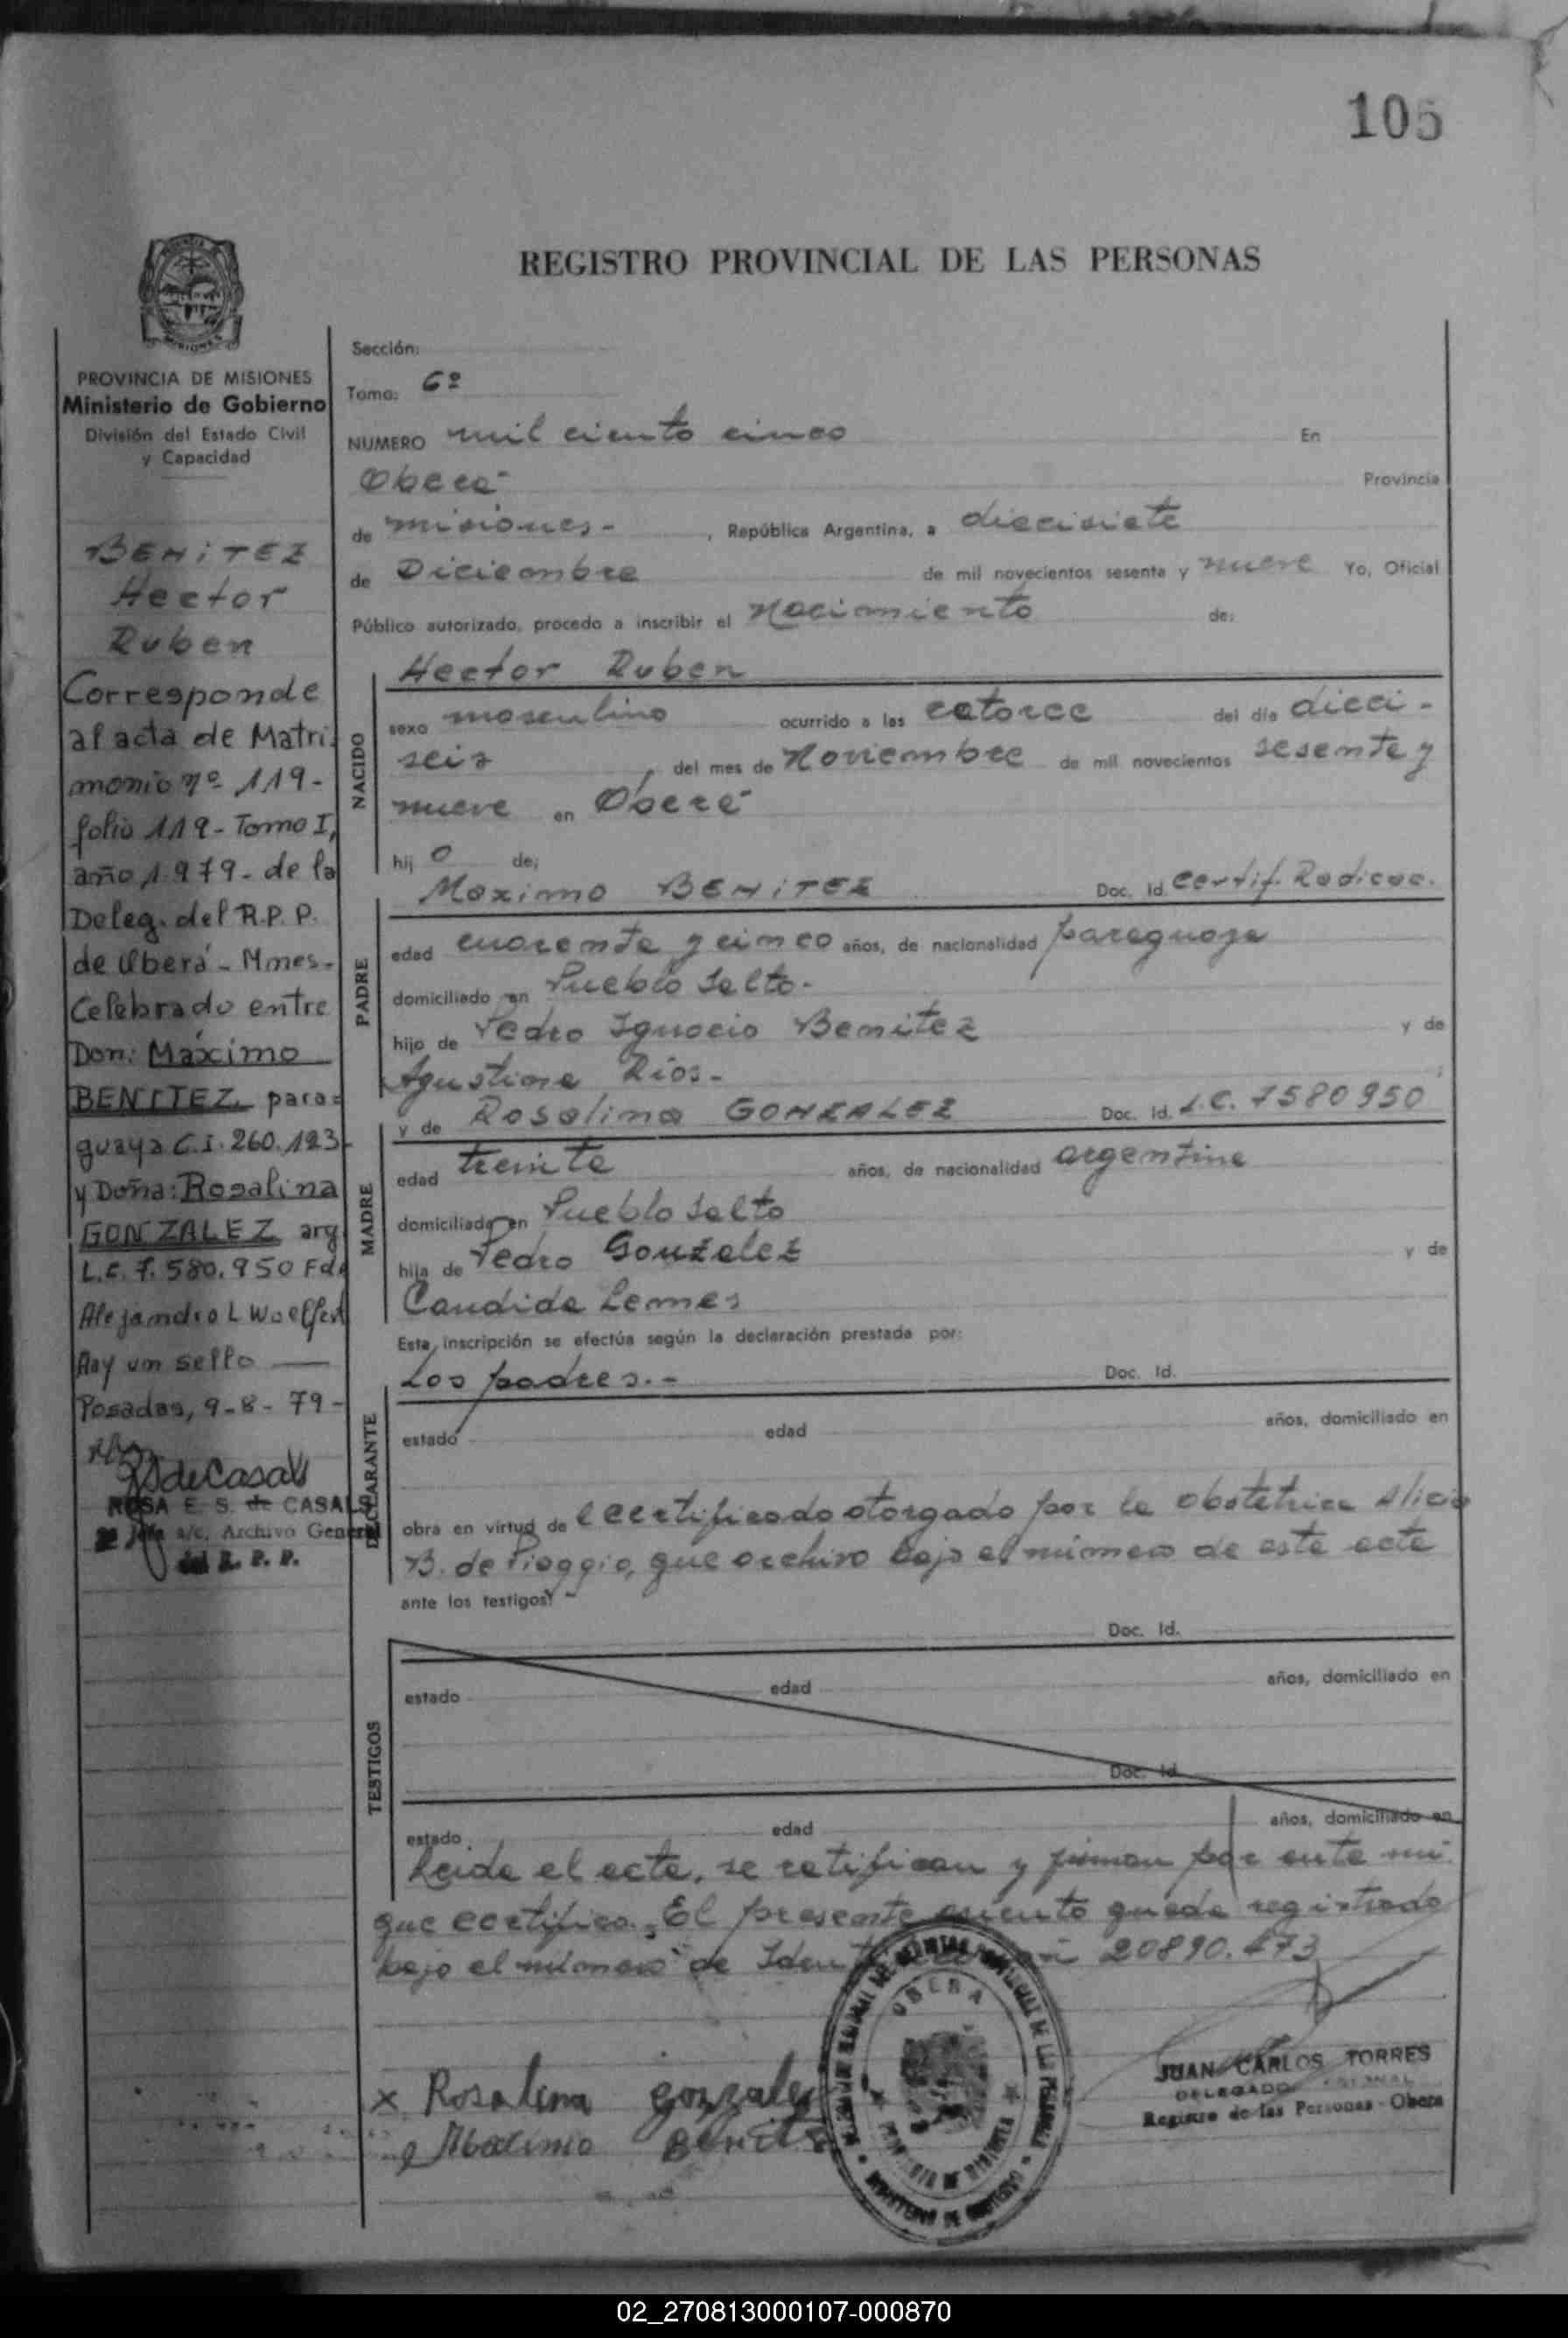 105
REGISTRO PROVINCIAL DE LAS PERSONAS
PROVINCIA DE MISIONES
Ministerio de Gobierno
División del Estado Civil
y Capacidad
BENITEZ
Hector
Ruben
Corresponde
al acta de Matri
monio nº 119-
folio 119- Tomo I,
año 1.979- de la
Deleg. del R.P.P.
de Oberá - Mnes-
Celebrado entre
Don: Máximo
BENITEZ, para=
guaya C.I. 260.123-
y Doña: Rosalina
GONZALEZ arg
L.C. 7.580.950 Fdo
Alejandro L Woelfert
Hay un sello
Posadas, 9-8-79-
ROSA E. S. de CASALS
Jefe a/c. Archivo General
del R. P. P.
Sección:
Tomo: 6º
NUMERO mil ciento cinco En
Oberá- Provincia
de misiones- , República Argentina, a diecisiete
de Diciembre de mil novecientos sesenta y nueve Yo, Oficial
Público autorizado, procedo a inscribir el Nacimiento de:
NACIDO
Hector Ruben
sexo masculino ocurrido a las catorce del día dieci-
seis , del mes de Noviembre de mil novecientos sesenta y
nueve en Oberá-
hij o de;
PADRE
Maximo BENITEZ Doc. Id. Certif. Radicac.
edad cuarenta y cinco años, de nacionalidad paraguaya
domiciliado en Pueblo Salto-
hijo de Pedro Ignacio Benitez y de
Agustina Rios-
MADRE
y de Rosalina GONZALEZ Doc. Id. L.C. 7580950
edad treinta años, de nacionalidad argentina
domiciliada en Pueblo Salto
hija de Pedro Gonzalez y de
Candida Lemes
Esta inscripción se efectúa según la declaración prestada por:
DECLARANTE
Los padres.- Doc. Id.
estado edad años, domiciliado en
obra en virtud de l certificado otorgado por la obstetrica Alicia
B. de Pioggio, que archivo bajo el número de esta acta
ante los testigos: -
TESTIGOS
Doc. Id.
estado edad años, domiciliado en
Doc. Id.
estado edad años, domiciliado en
Leida el acta, se ratifican y firman por ante mi
que certifico. El presente asiento queda registrado
bajo el número de 20890.473
x Rosalina gonzalez
Maximo Benitez
OBERA
PROVINCIA DE MISIONES
MINISTERIO DE GOBIERNO
JUAN CARLOS TORRES
DELEGADO
Registro de las Personas - Obera
02_270813000107-000870